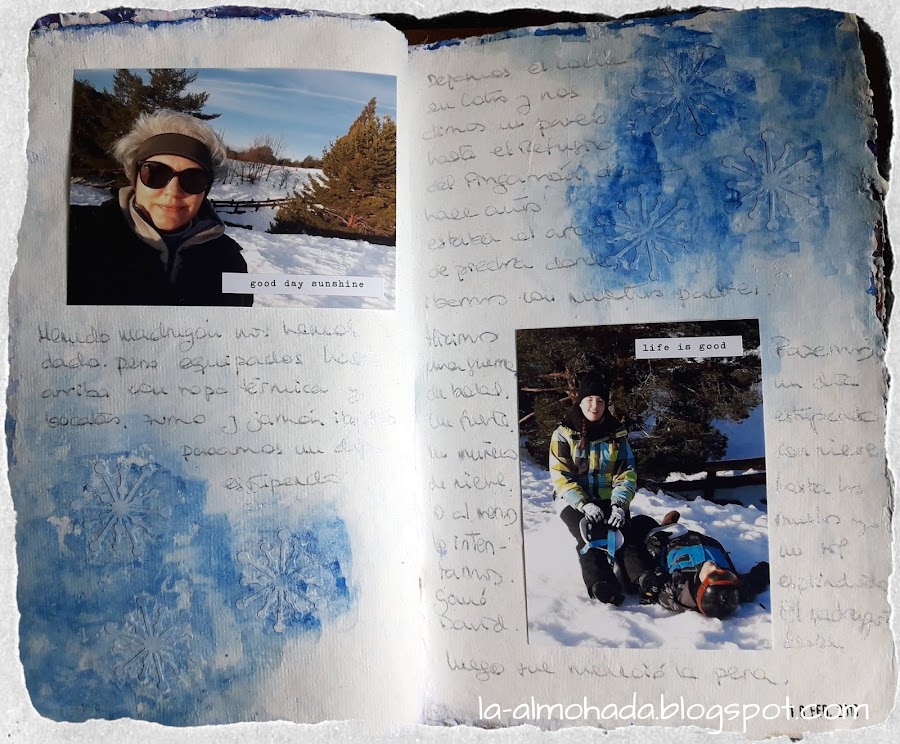 good day sunshine
Menudo madrugón nos hemos
dado. pero equipados hasta
arriba con ropa térmica y
bocatas. zumo y jamón
pasamos un día
estupendo
Dejamos el coche
en Cotos y nos
dimos un paseo
hasta el Refugio
del Pingarrón donde
hace años
estaba el aro
de piedra donde
íbamos con nuestros padres.
Hicimos
una guerra
de bolas.
un fuerte
un muñeco
de nieve.
o al menos
lo inten-
tamos.
Ganó
David.
life is good
Pasamos
un día
estupendo
con nieve
hasta los
y
un sol
espléndido
El madrugón
luego que mereció la pena.
la-almohada.blogspot.com